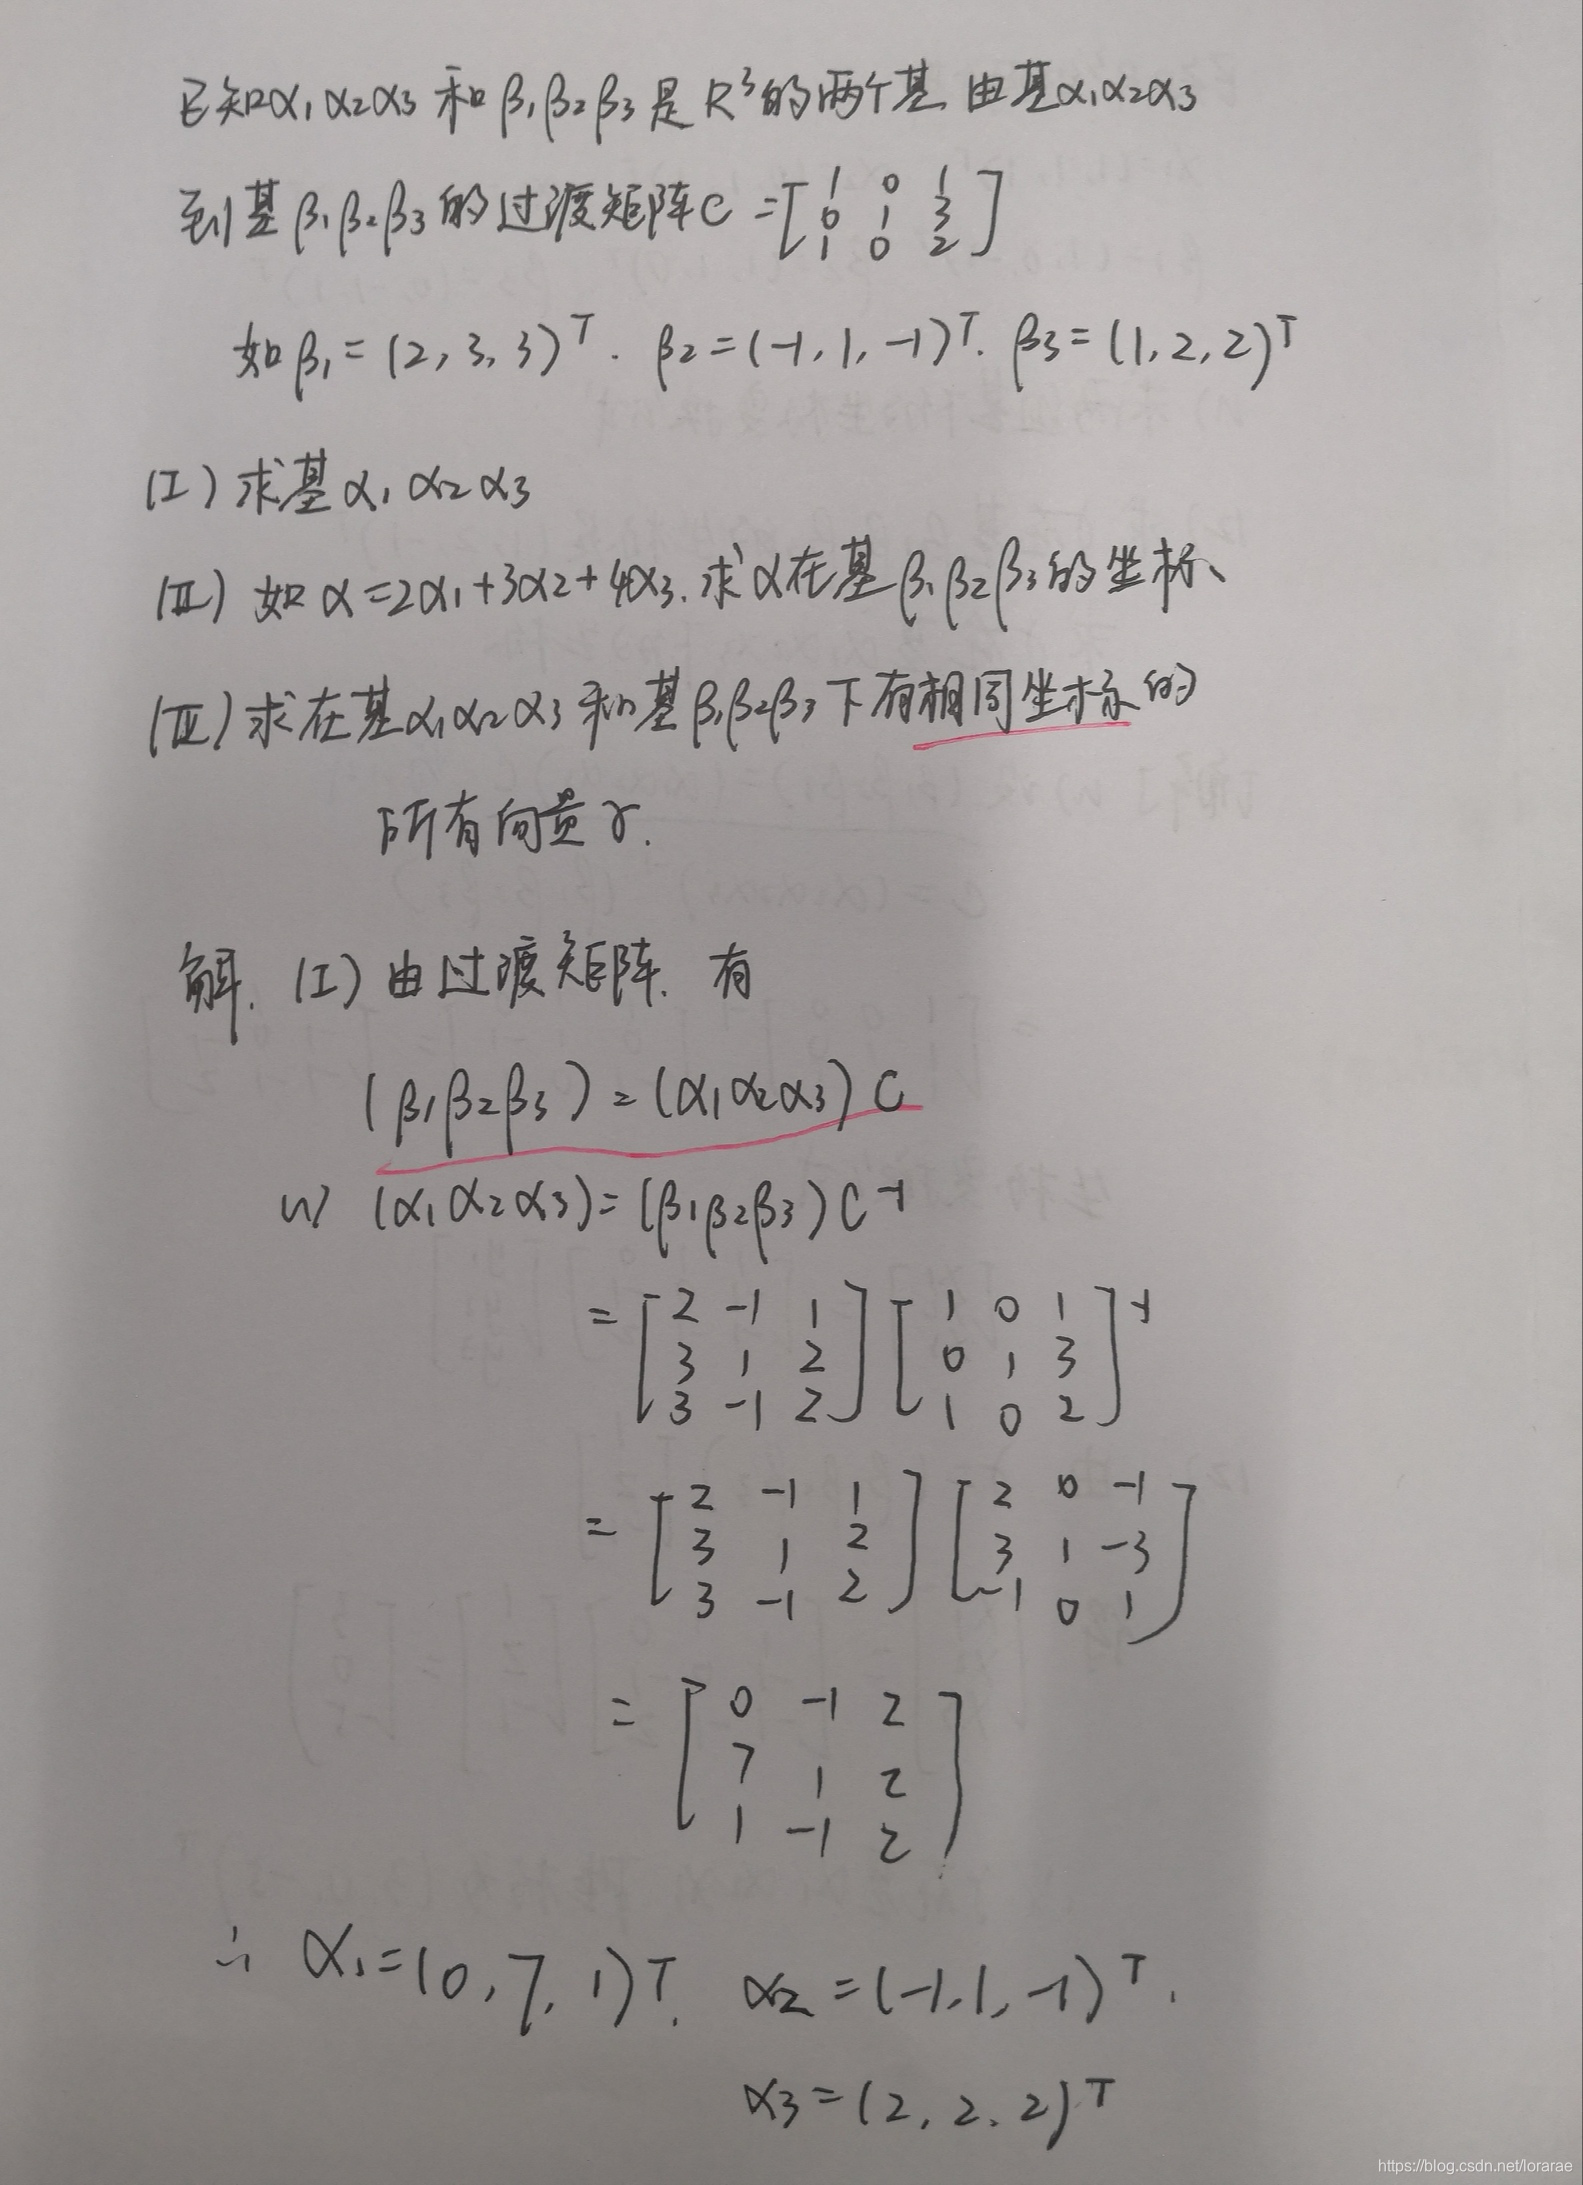 已知α₁α₂α₃和β₁β₂β₃是R³的两个基.由基α₁α₂α₃
到基β₁β₂β₃的过渡矩阵C=[1 0 1
0 1 3
1 0 2]
如β₁=(2,3,3)ᵀ.β₂=(-1,1,-1)ᵀ.β₃=(1,2,2)ᵀ
(I)求基α₁α₂α₃
(II)如α=2α₁+3α₂+4α₃.求α在基β₁β₂β₃的坐标、
(III)求在基α₁α₂α₃和基β₁β₂β₃下有相同坐标的
所有向量γ.
解.(I)由过渡矩阵.有
(β₁β₂β₃)=(α₁α₂α₃)C
(α₁α₂α₃)=(β₁β₂β₃)C⁻¹
=[2 -1 1][1 0 1]⁻¹
3 1 2 0 1 3
3 -1 2 1 0 2
=[2 -1 1][2 0 -1]
3 1 2 3 1 -3
3 -1 2 -1 0 1
=[0 -1 2]
7 1 2
1 -1 2
∴ α₁=(0,7,1)ᵀ. α₂=(-1,1,-1)ᵀ.
α₃=(2,2,2)ᵀ
https://blog.csdn.net/lorarae